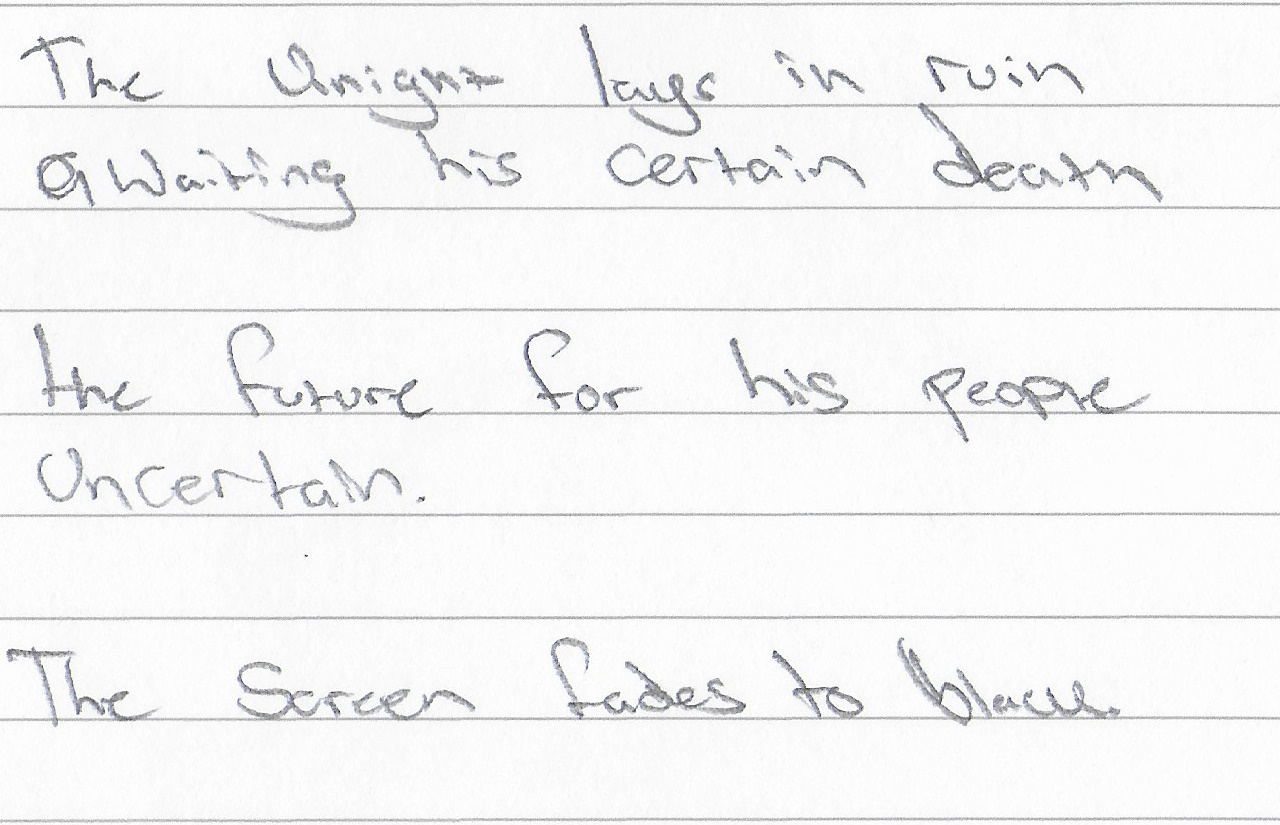 The Knight lays in ruin
awaiting his certain death
the future for his people
uncertain.
The Screen fades to black.